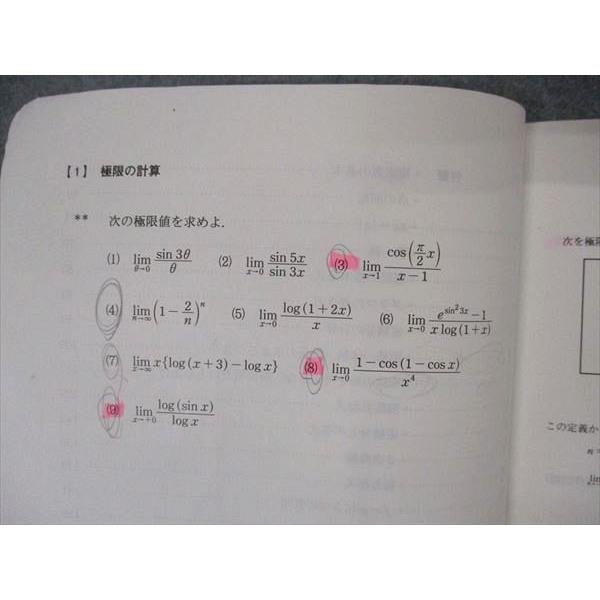 【1】 極限の計算
** 次の極限値を求めよ.
(1) lim_{θ→0} sin 3θ / θ (2) lim_{x→0} sin 5x / sin 3x (3) lim_{x→1} cos(π/2 x) / x−1
(4) lim_{n→∞} (1−2/n)^n (5) lim_{x→0} log(1+2x) / x (6) lim_{x→0} e^{sin²3x}−1 / x log(1+x)
(7) lim_{x→∞} x{log(x+3)−log x} (8) lim_{x→0} 1−cos(1−cos x) / x⁴
(9) lim_{x→+0} log(sin x) / log x
次を極限
この定義か
n=
lim